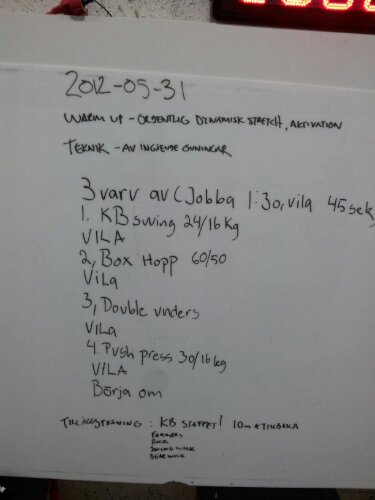 2012-05-31
WARM UP - ORDENTLIG DYNAMISK STRETCH, AKTIVATION
TEKNIK - AV INGÅENDE ÖVNINGAR
3 varv av (Jobba 1:30, vila 45 sek
1. KB swing 24/16 kg
VILA
2, Box Hopp 60/50
Vila
3, Double unders
Vila
4. Push press 30/16 kg
VILA
Börja om
TILLÄGGSTRÄNING : KB STAFFET! 10m TILLBAKA
FARMERS
RACK
SWING WALK
BEAR WALK